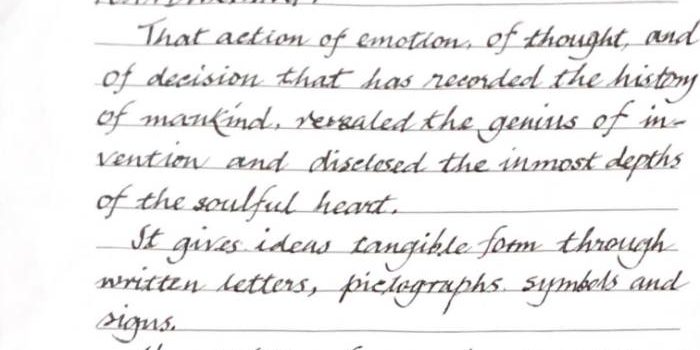 That action of emotion, of thought, and
of decision that has recorded the history
of mankind, revealed the genius of in-
vention and disclosed the inmost depths
of the soulful heart.
It gives ideas tangible form through
written letters, pictographs. symbols and
signs.